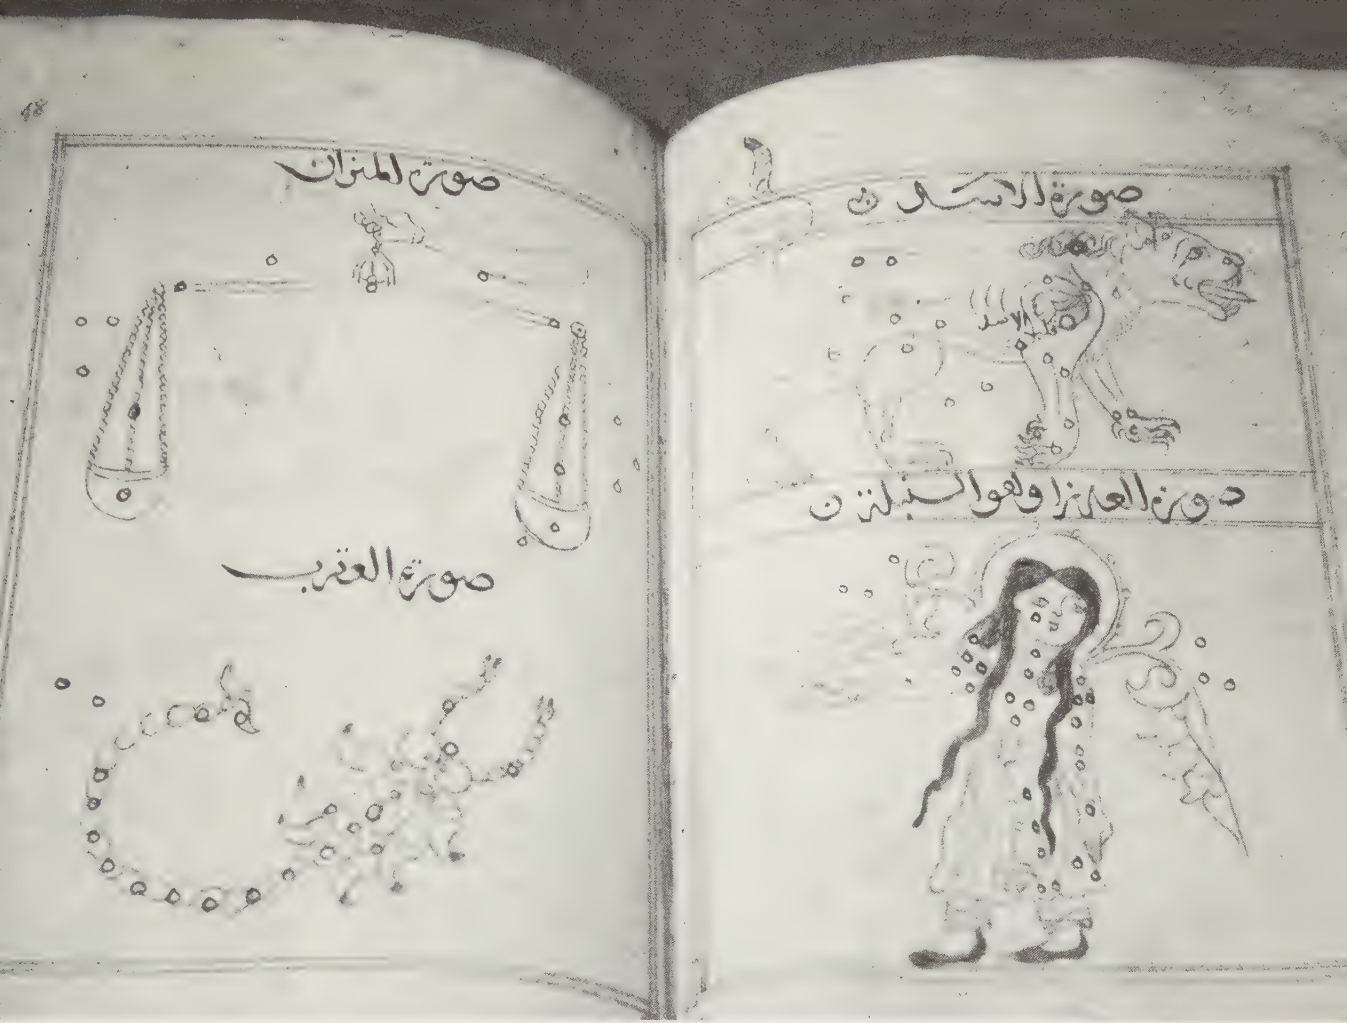 صورة الاسد ن
قلب الاسد
صورة العذرا وهو السنبلة ن
صورة الميزان
صورة العقرب